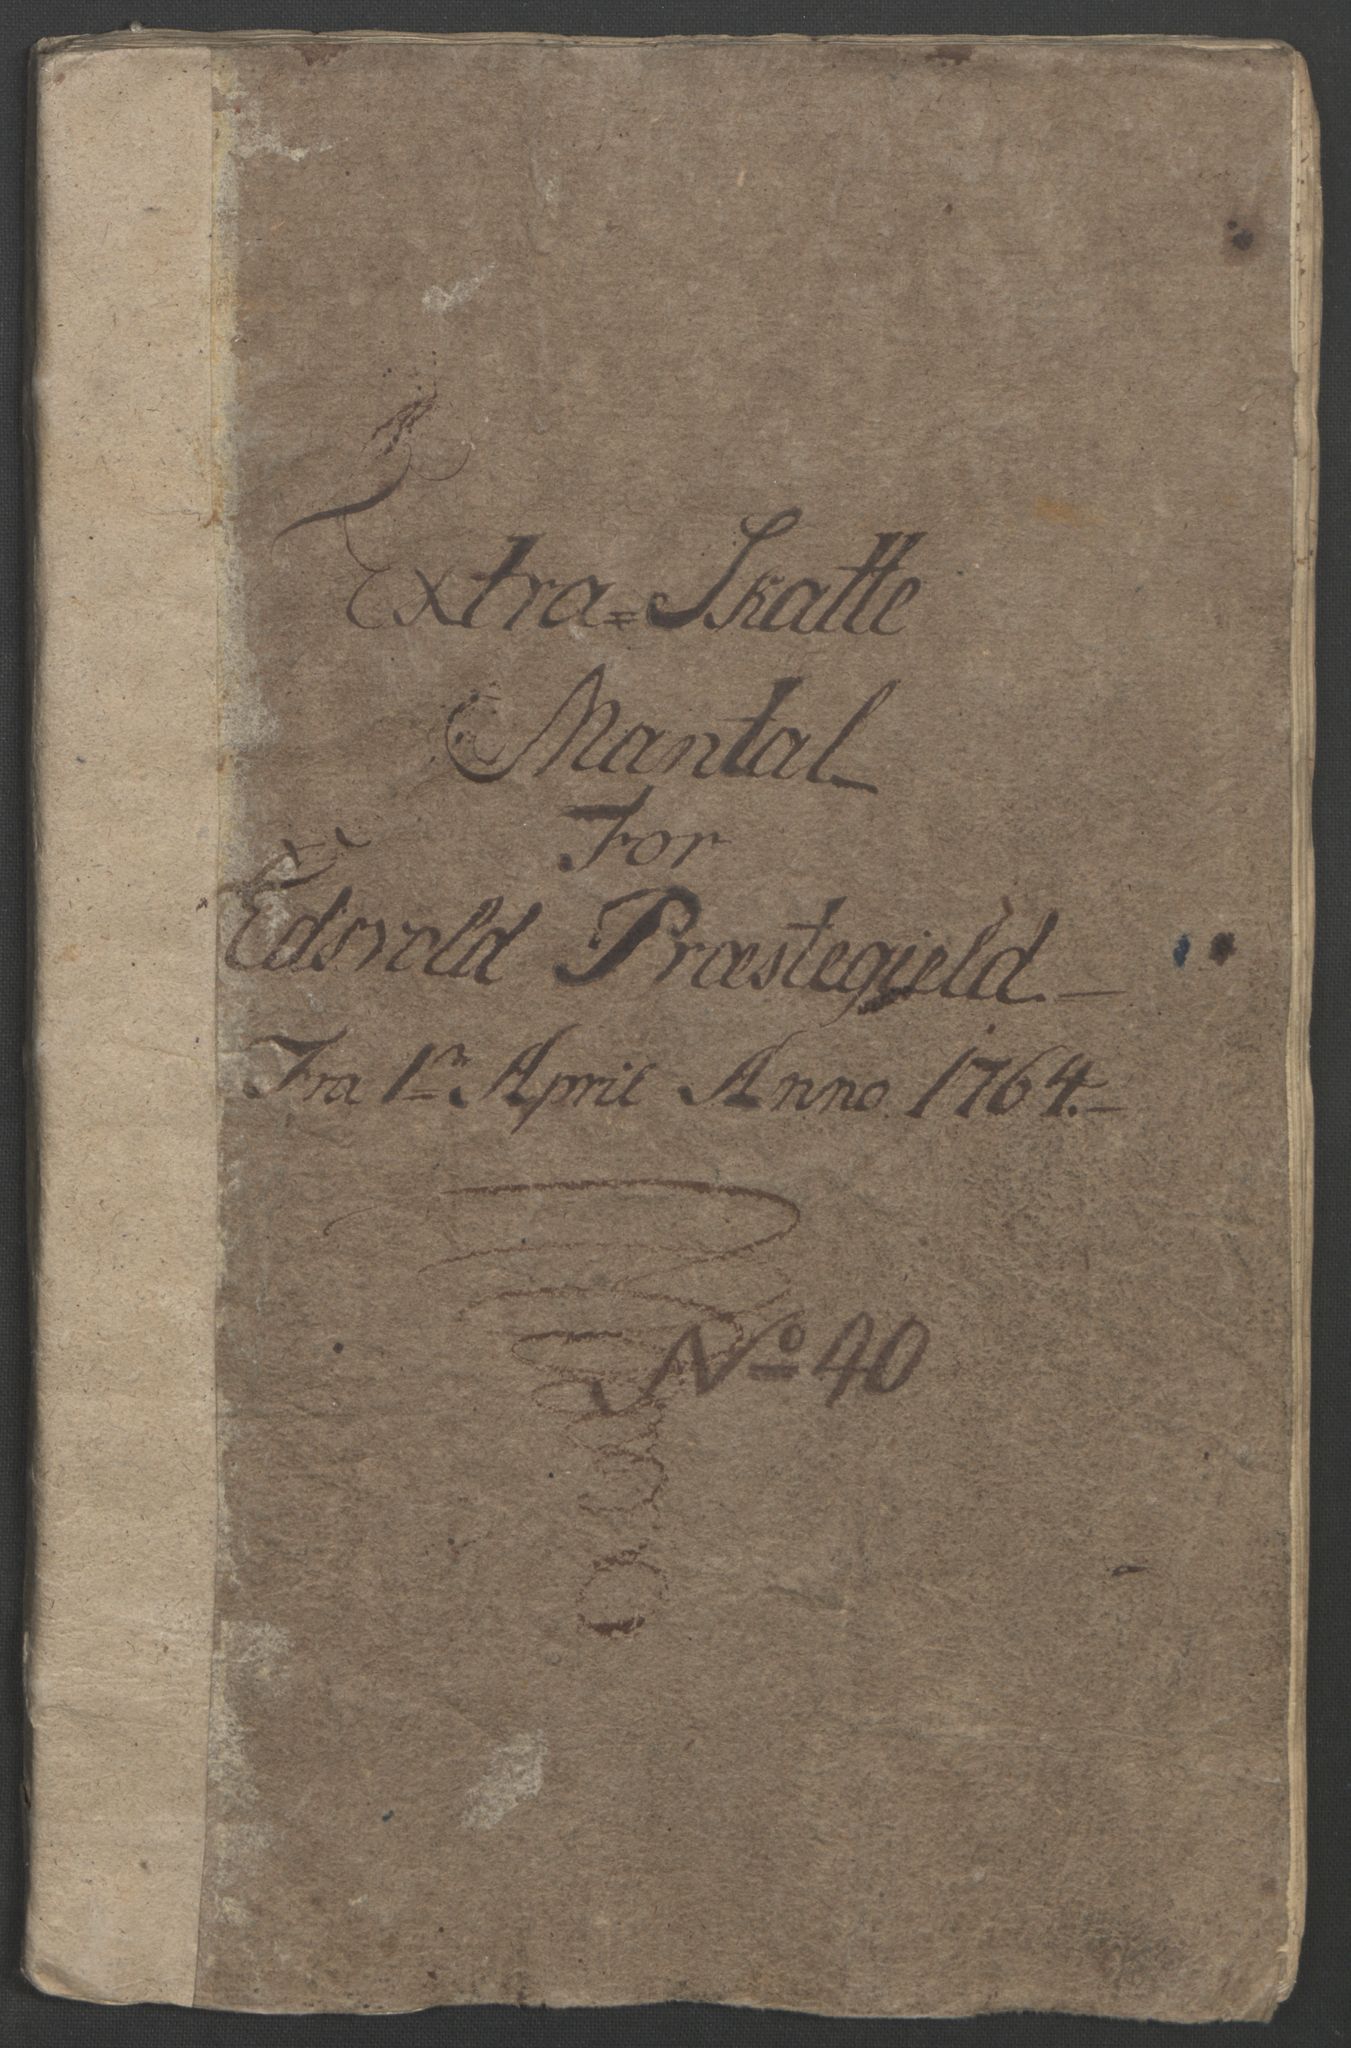 Extra-Skatte
Mantal
For
Edsvold Præstegield.
Fra 1ⁿ April Anno 1764.
No 40